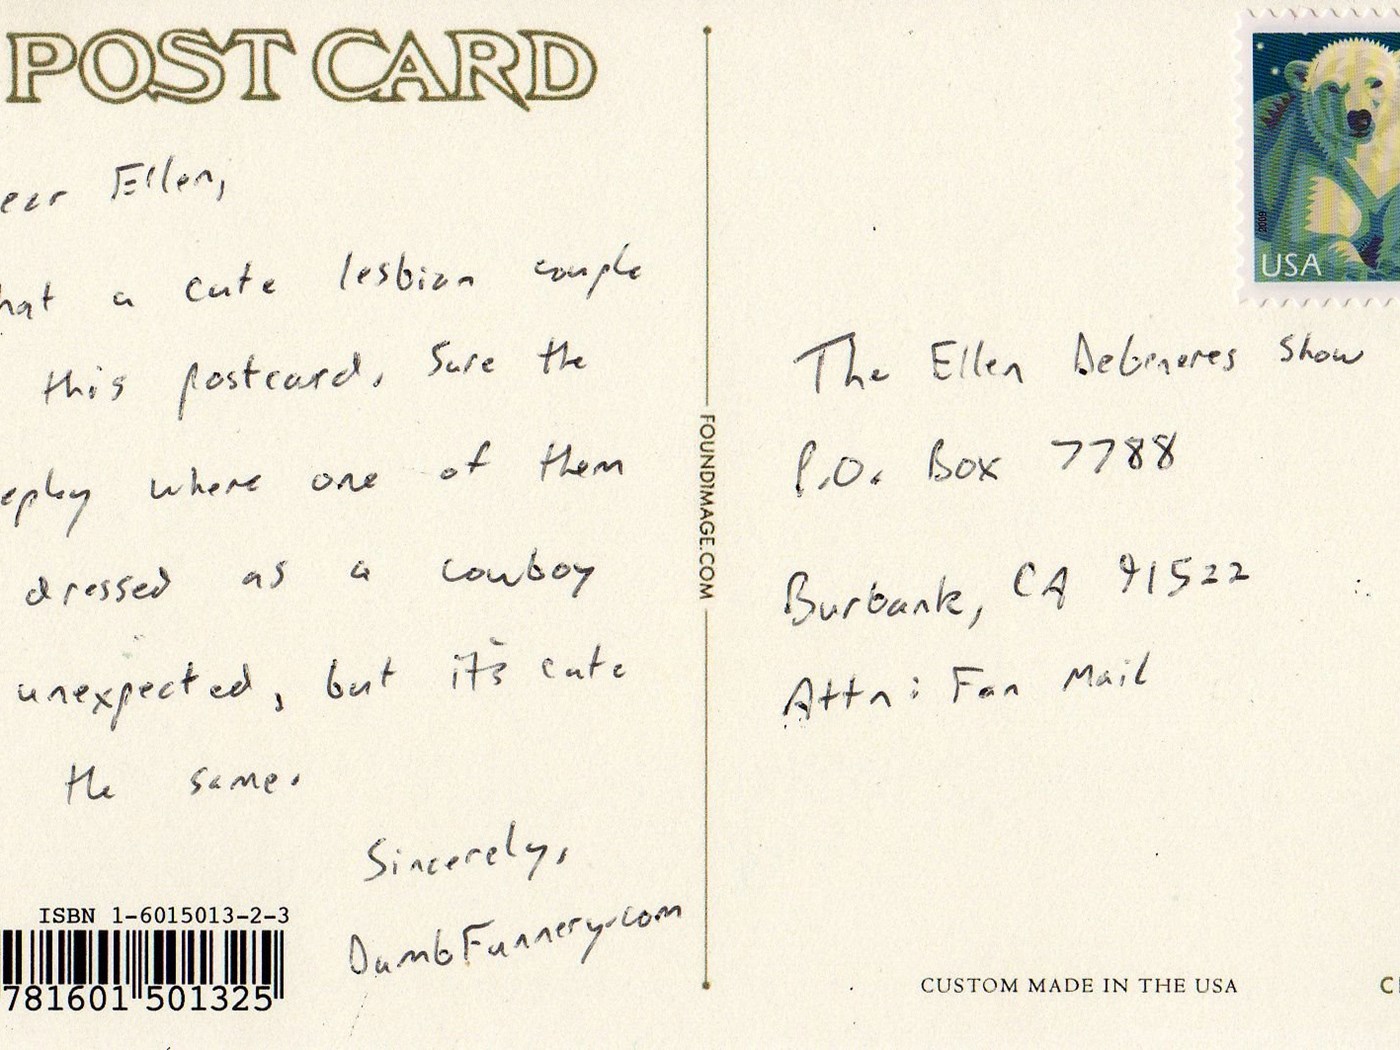 POST CARD
ear Ellen,
hat a cute lesbian couple
this postcard. Sure the
eplay where one of them
dressed as a cowboy
unexpected, but it's cute
the same.
Sincerely,
DumbFunnery.com
ISBN 1-6015013-2-3
781601 501325
FOUNDIMAGE.COM
USA
2009
The Ellen DeGeneres Show
P.O. Box 7788
Burbank, CA 91522
Attn: Fan Mail
CUSTOM MADE IN THE USA